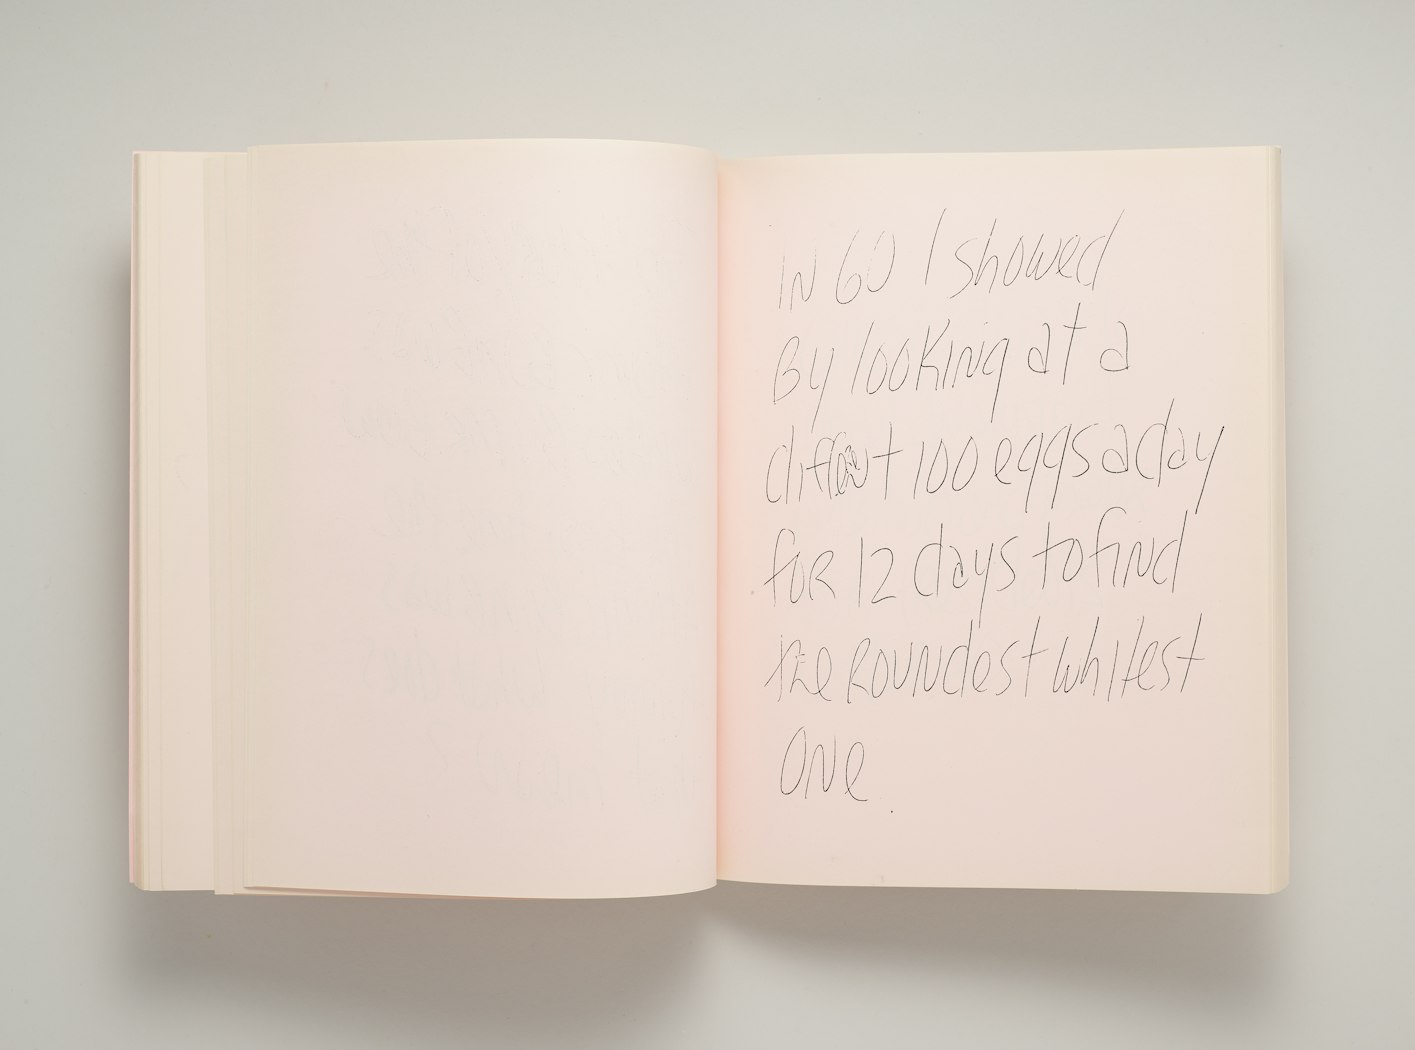 IN 60 I showed
By looking at a
different 100 eggs a day
for 12 days to find
the Roundest whitest
one.